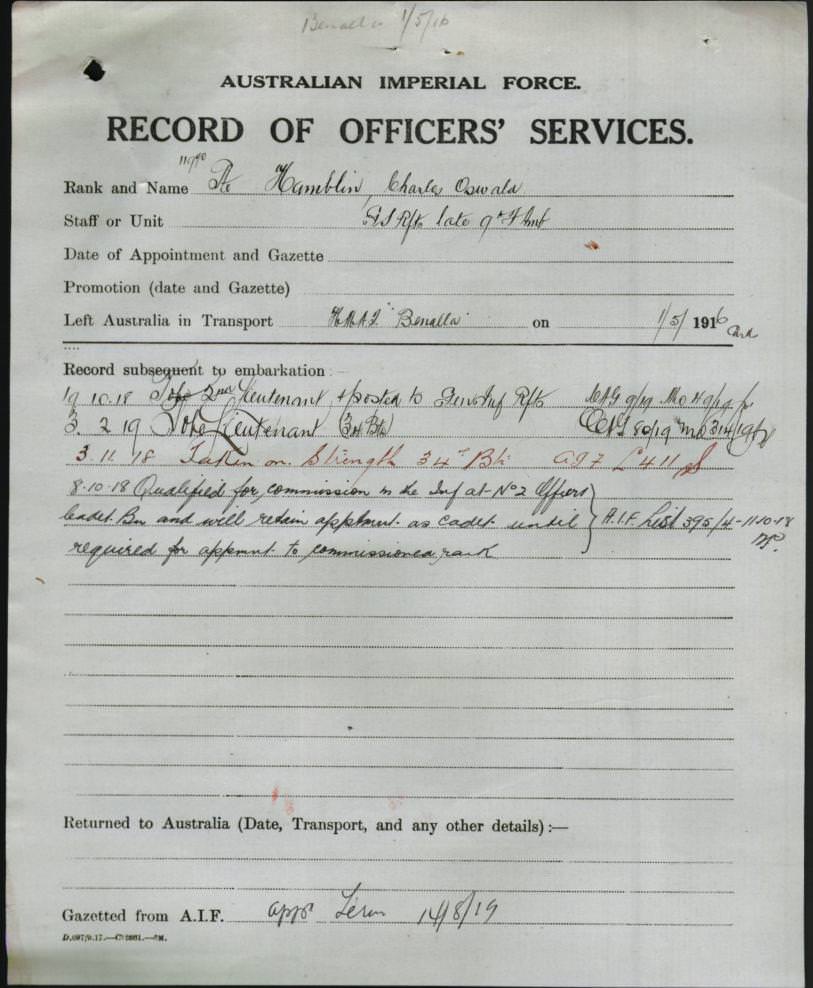 Benalla 1/5/16
AUSTRALIAN IMPERIAL FORCE.
RECORD OF OFFICERS' SERVICES.
Rank and Name Pte Hamblin, Charles Oswald
Staff or Unit Rfts late 9th F Amb
Date of Appointment and Gazette
Promotion (date and Gazette)
Left Australia in Transport H.M.A.T. "Benalla" on 1/5/ 1916
Record subsequent to embarkation :—
19.10.18 To be 2nd Lieutenant, & posted to Inf Rfts
3. 2 19 To be Lieutenant (34 Btn)
3. 11. 18 Taken on Strength 34th Btn
8-10-18 Qualified for commission in the Inf at No 2 Officers
Cadet Bn and will retain apptmnt as cadet until A.I.F. List 395/4-11-10-18
required for appmnt to commissioned rank
Returned to Australia (Date, Transport, and any other details) :—
Gazetted from A.I.F. app Term 14/8/19